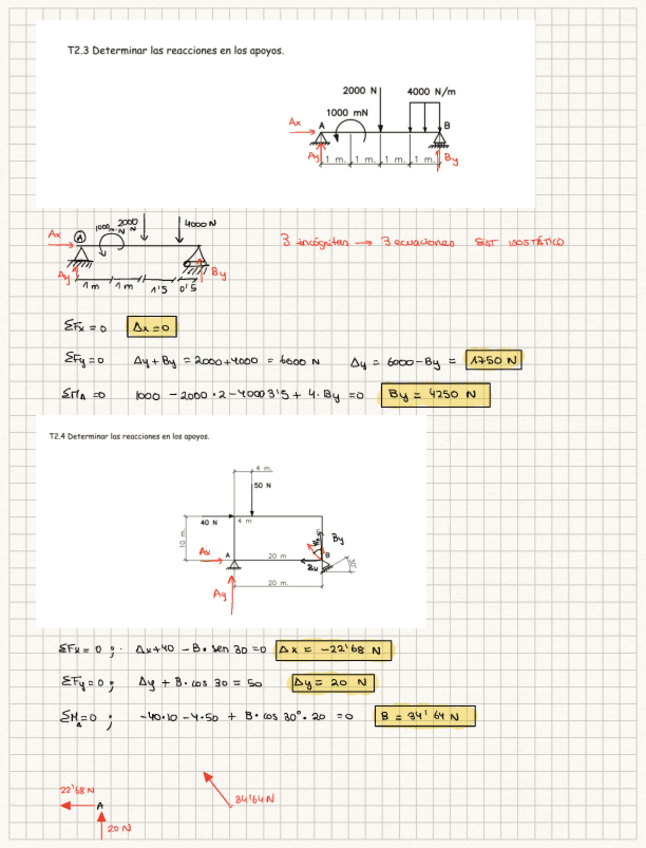 T2.3 Determinar las reacciones en los apoyos.
2000 N
4000 N/m
1000 mN
Ax
A
B
Ay
1 m.
1 m.
1 m.
1 m.
By
Ax
A
2000 N
4000 N
Ay
By
1 m
1 m
1'5
0'5
3 incógnitas → 3 ecuaciones
EST ISOSTÁTICO
ΣFx = 0
Ax = 0
ΣFy = 0 Ay + By = 2000 + 4000 = 6000 N Ay = 6000 - By = 1750 N
ΣMA = 0 1000 - 2000 · 2 - 4000 3'5 + 4 · By = 0 By = 4250 N
T2.4 Determinar las reacciones en los apoyos.
4 m.
50 N
40 N
4 m
10 m.
By
Ax
A
20 m
B
Bx
30°
20 m.
Ay
ΣFx = 0 ; Ax + 40 - B · sen 30 = 0 Ax = -22'68 N
ΣFy = 0 ; Ay + B · cos 30 = 50 Ay = 20 N
ΣMA = 0 ; -40·10 - 4·50 + B · cos 30° · 20 = 0 B = 34'64 N
22'68 N
A
20 N
34'64 N